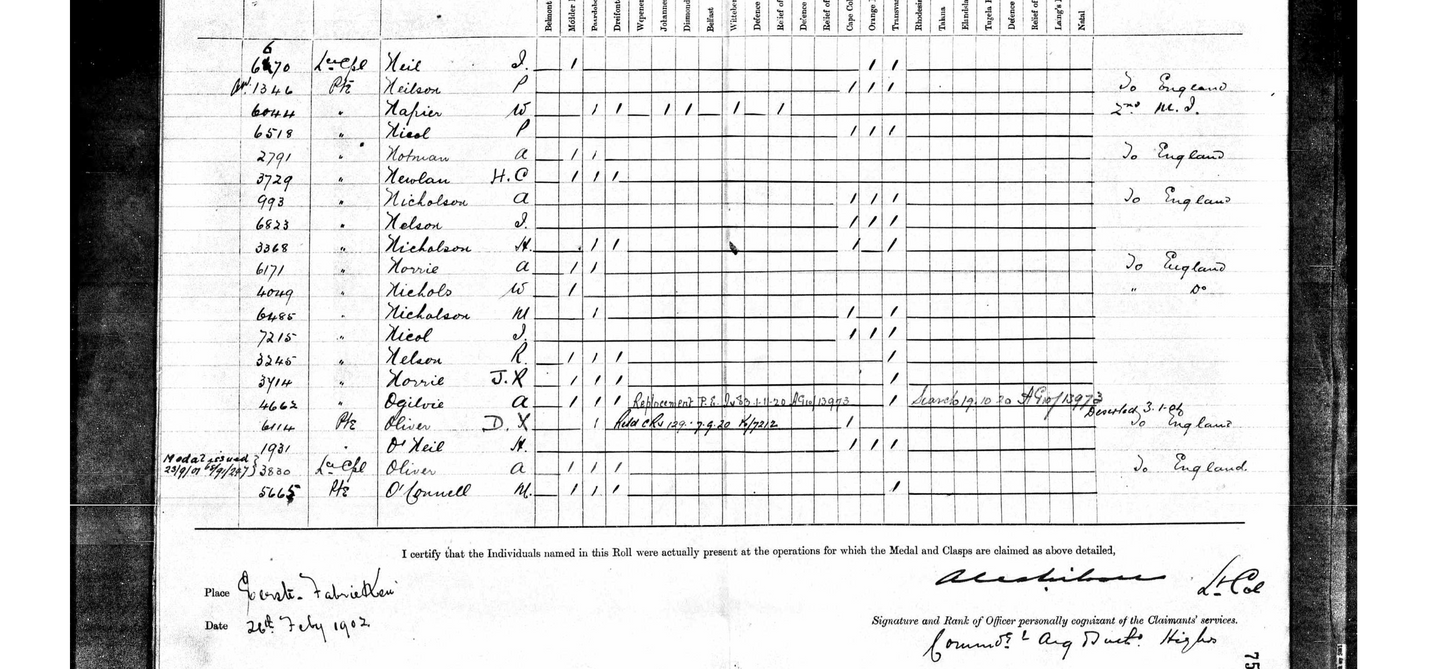 Belmont Modder Paardeb Dreifont Wepener Johannes Diamond Belfast Witteber Defence Relief of Defence Relief of Cape Col Orange Transva Rhodesia Talana Elandsla Tugela Defence Relief of Laing's Natal
6
6470 Lce Cpl Neil J. / / /
1346 Pte Neilson P / / / To England
6044 " Napier W / / / / / / 2nd M.I.
6518 " Nicol P / / /
2791 " Notman A / / To England
3729 " Newlan H.C / / /
993 " Nicholson A / / / To England
6823 " Nelson J. / / /
3368 " Nicholson H. / / / /
6171 " Norrie A / / To England
4049 " Nichols W / " Do
6485 " Nicholson M / / /
7215 " Nicol J. / / /
3245 " Nelson R. / / / /
3714 " Norrie J.R / / / /
4662 " Ogilvie A / / / Replacement 1.11.20 AG10/13973 / Search 19.10.20 AG10/13973
6114 Pte Oliver D. X / 7.9.20 K/7212 / Deserted 3.1.06 To England
1931 " O'Neil H. / / /
Medal issued 3830 Lce Cpl Oliver A / / / To England.
5665 Pte O'Connell M. / / / /
I certify that the Individuals named in this Roll were actually present at the operations for which the Medal and Clasps are claimed as above detailed,
Place Eerste Fabrieken
Lt Col
Date 26th Feby 1902
Signature and Rank of Officer personally cognizant of the Claimants' services.
Highrs
75